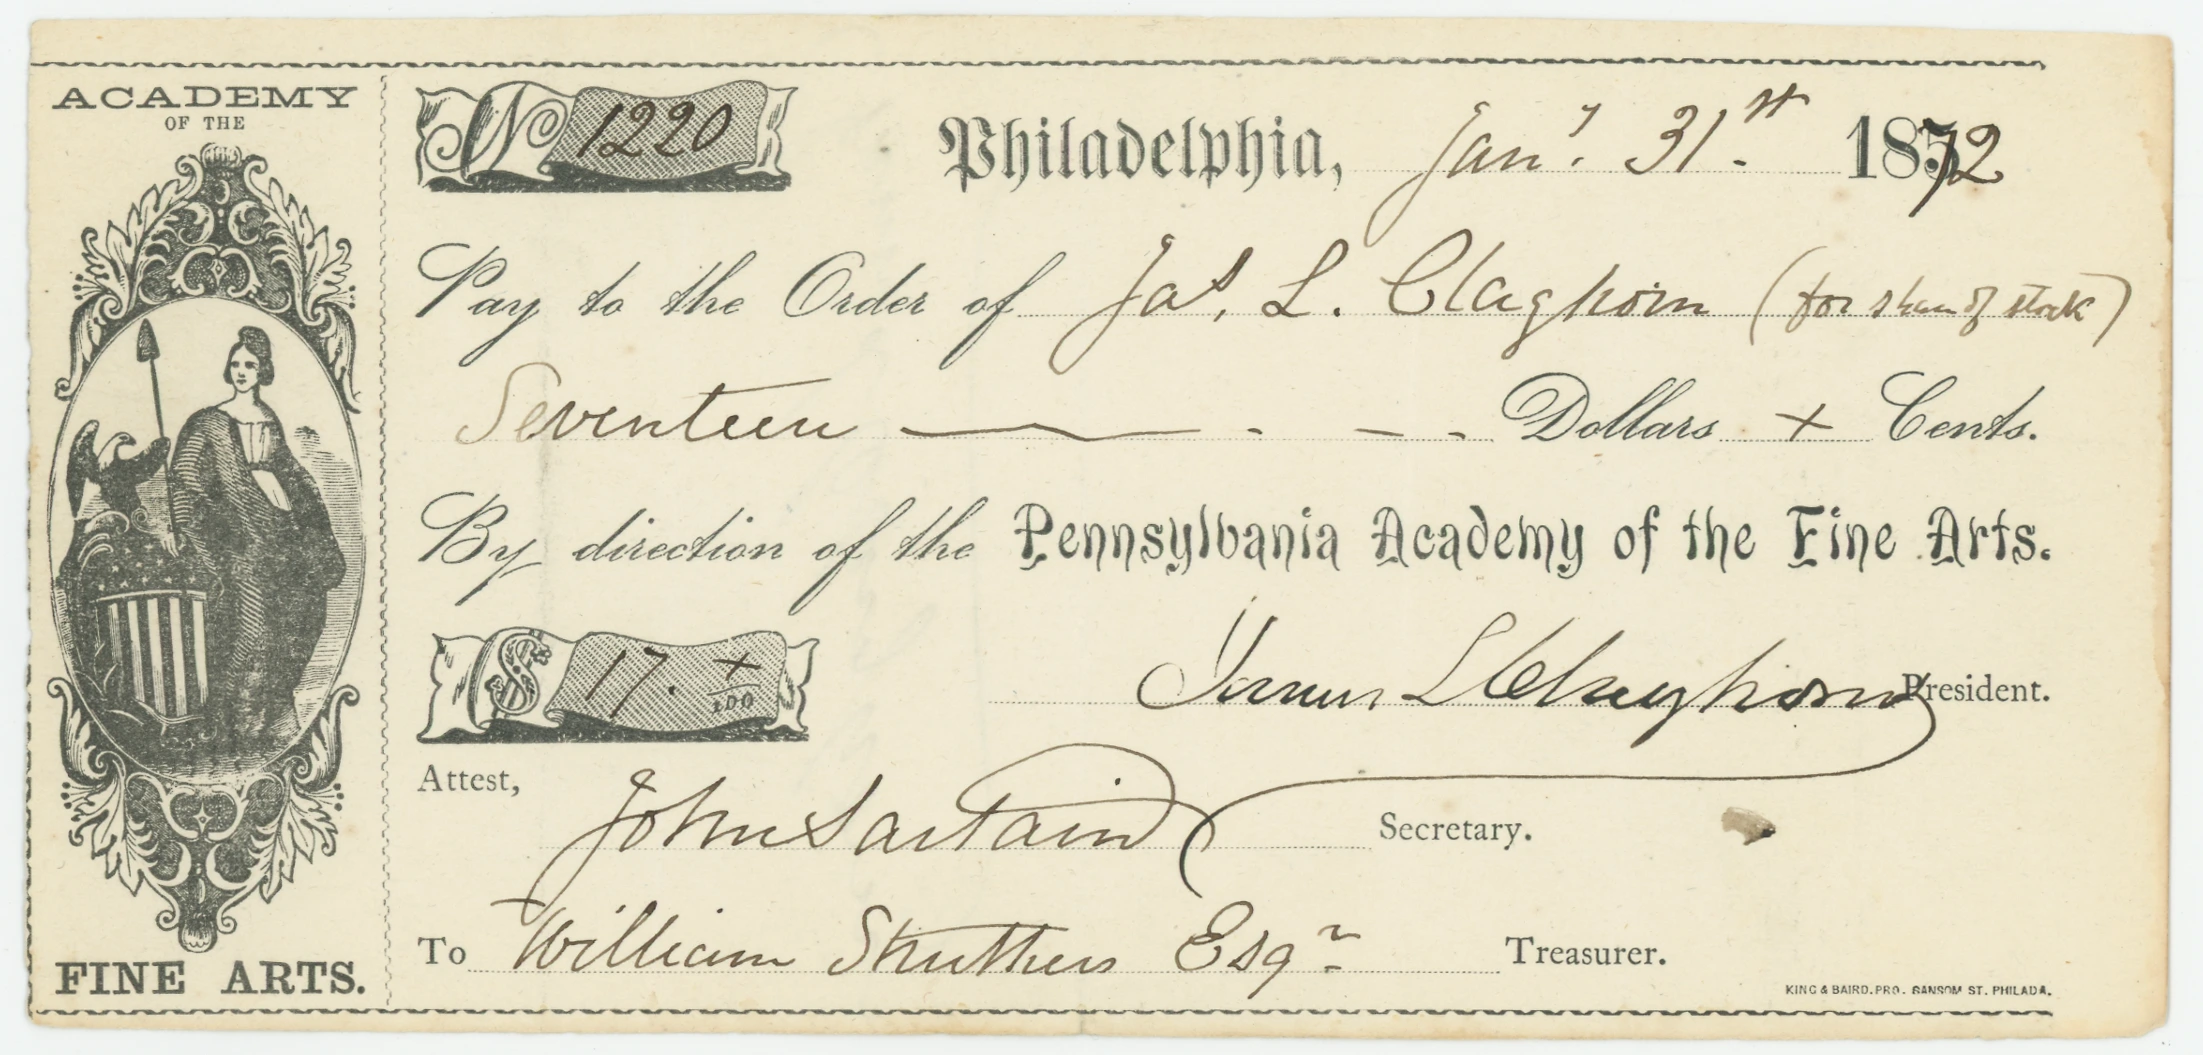 ACADEMY
OF THE
FINE ARTS.
No 1220
Philadelphia, Jany. 31st. 1872
Pay to the Order of Jas. L. Claghorn (for share of stock)
Seventeen — - - - Dollars + Cents.
By direction of the Pennsylvania Academy of the Fine Arts.
$ 17. +/100
James L Claghorn President.
Attest, John Sartain Secretary.
To William Struthers Esqr Treasurer.
KING & BAIRD. PRO. SANSOM ST. PHILADA.